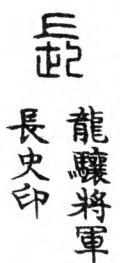 龍驤將軍
長史印